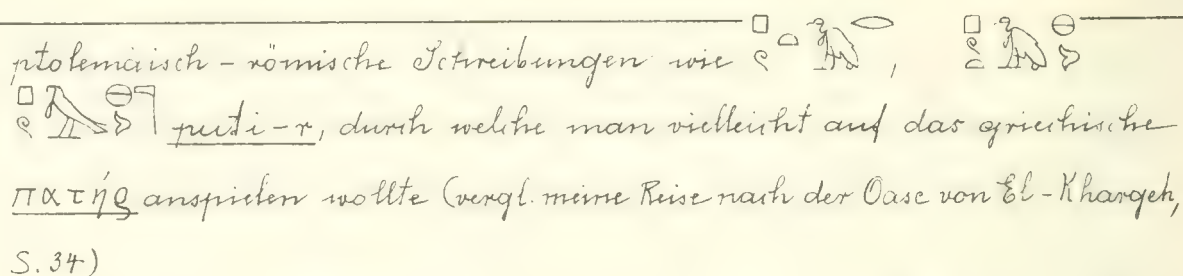 ptolemäisch - römische Schreibungen wie , 
puti-r, durch welche man vielleicht auf das griechische
πατήρ anspielen wollte (vergl. meine Reise nach der Oase von El-Khargeh,
S. 34)